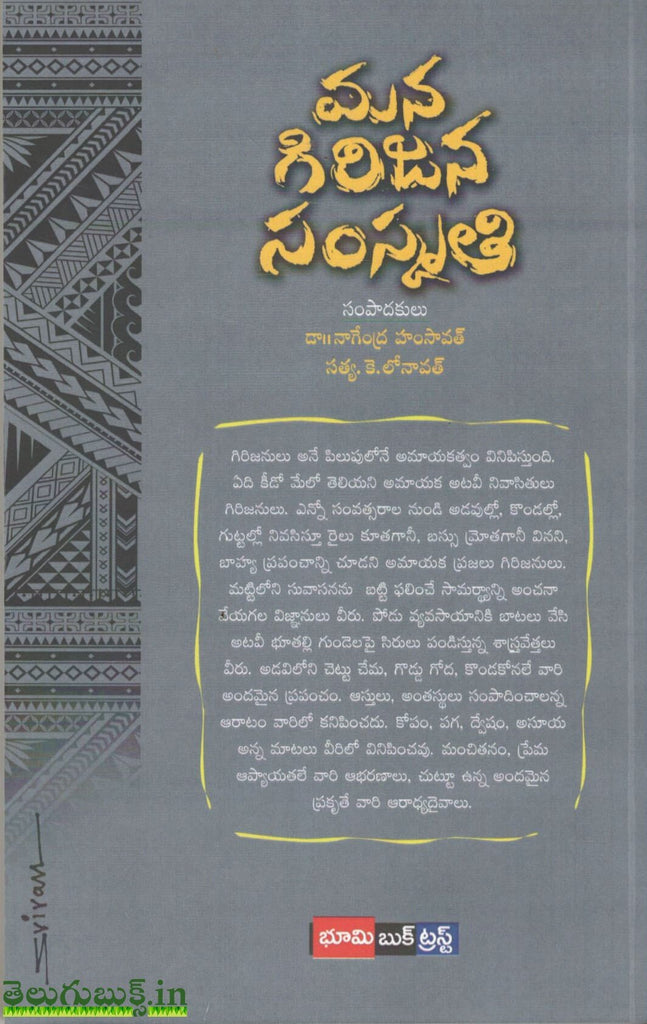 మన
గిరిజన
సంస్కృతి
సంపాదకులు
డా॥నాగేంద్ర హంసావత్
సత్య. కె.లోనావత్
గిరిజనులు అనే పిలుపులోనే అమాయకత్వం వినిపిస్తుంది.
ఏది కీడో మేలో తెలియని అమాయక అటవీ నివాసితులు
గిరిజనులు. ఎన్నో సంవత్సరాల నుండి అడవుల్లో, కొండల్లో,
గుట్టల్లో నివసిస్తూ రైలు కూతగానీ, బస్సు మ్రోతగానీ వినని,
బాహ్య ప్రపంచాన్ని చూడని అమాయక ప్రజలు గిరిజనులు.
మట్టిలోని సువాసనను బట్టి ఫలించే సామర్థ్యాన్ని అంచనా
వేయగల విజ్ఞానులు వీరు. పోడు వ్యవసాయానికి బాటలు వేసి
అటవీ భూతల్లి గుండెలపై సిరులు పండిస్తున్న శాస్త్రవేత్తలు
వీరు. అడవిలోని చెట్టు చేమ, గొడ్డు గోద, కొండకోనలే వారి
అందమైన ప్రపంచం. ఆస్తులు, అంతస్థులు సంపాదించాలన్న
ఆరాటం వారిలో కనిపించదు. కోపం, పగ, ద్వేషం, అసూయ
అన్న మాటలు వీరిలో వినిపించవు. మంచితనం, ప్రేమ
ఆప్యాయతలే వారి ఆభరణాలు, చుట్టూ ఉన్న అందమైన
ప్రకృతే వారి ఆరాధ్యదైవాలు.
భూమి బుక్ ట్రస్ట్
Sriram
తెలుగుబుక్స్.in